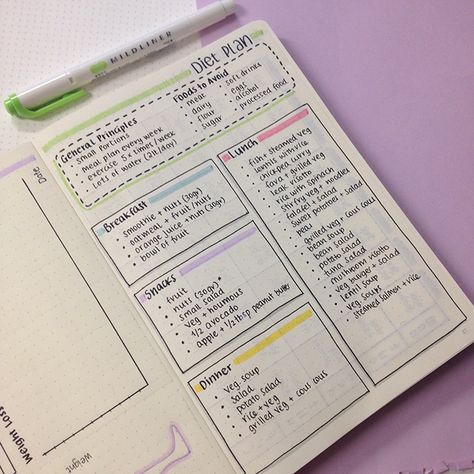 MILDLINER
Diet Plan
General Principles
small portions
meal plan every week
exercise 5x times/week
Lots of water (2L/day)
Foods to Avoid
meat
dairy
flour
sugar
soft drinks
eggs
alcohol
processed food
Breakfast
smoothie + nuts (30gr)
oatmeal + fruit/nuts
orange juice + nuts (30gr)
bowl of fruit
Snacks
fruit
nuts (30gr)*
small salad
veg + houmous
1/2 avocado
apple + 1/2 tbsp peanut butter
Dinner
veg soup
salad
potato salad
rice + veg
grilled veg + cous cous
Lunch
fish + steamed veg
lentils w/rice
chickpea curry
farro + grilled veg
leak risotto
rice with spinach
stirfry veg + noodles
falafel + salad
sweet potatoe + salad
peas
grilled veg + cous cous
bean soup
bean salad
potato salad
tuna salad
mushroom risotto
veg burger + salad
lentil soup
veg soups
steamed salmon + rice
Date
Weight Loss
Weight